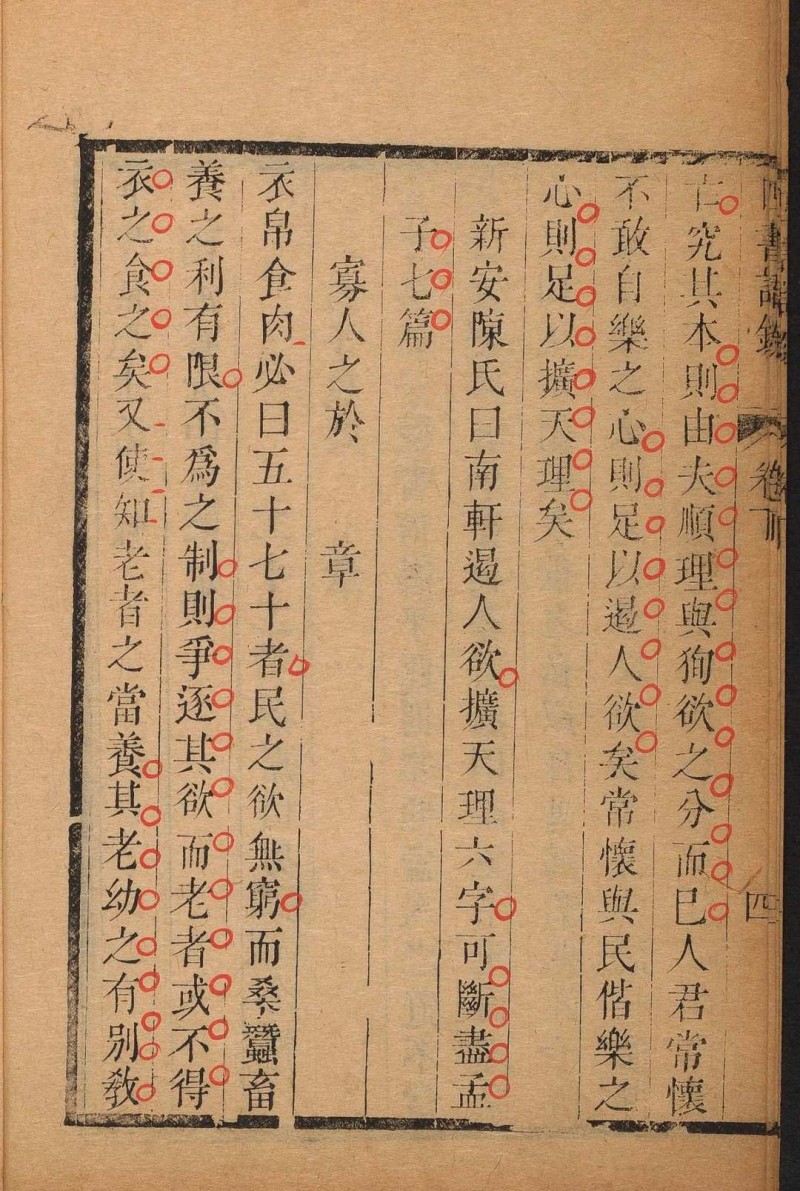 四書語錄 卷下 四
亡究其本則由夫順理與狥欲之分而巳人君常懷
不敢自樂之心則足以遏人欲矣常懷與民偕樂之
心則足以擴天理矣
新安陳氏曰南軒遏人欲擴天理六字可斷盡孟
子七篇
寡人之於 章
衣帛食肉必曰五十七十者民之欲無窮而桑蠶畜
養之利有限不爲之制則爭逐其欲而老者或不得
衣之食之矣又使知老者之當養其老幼之有別敎